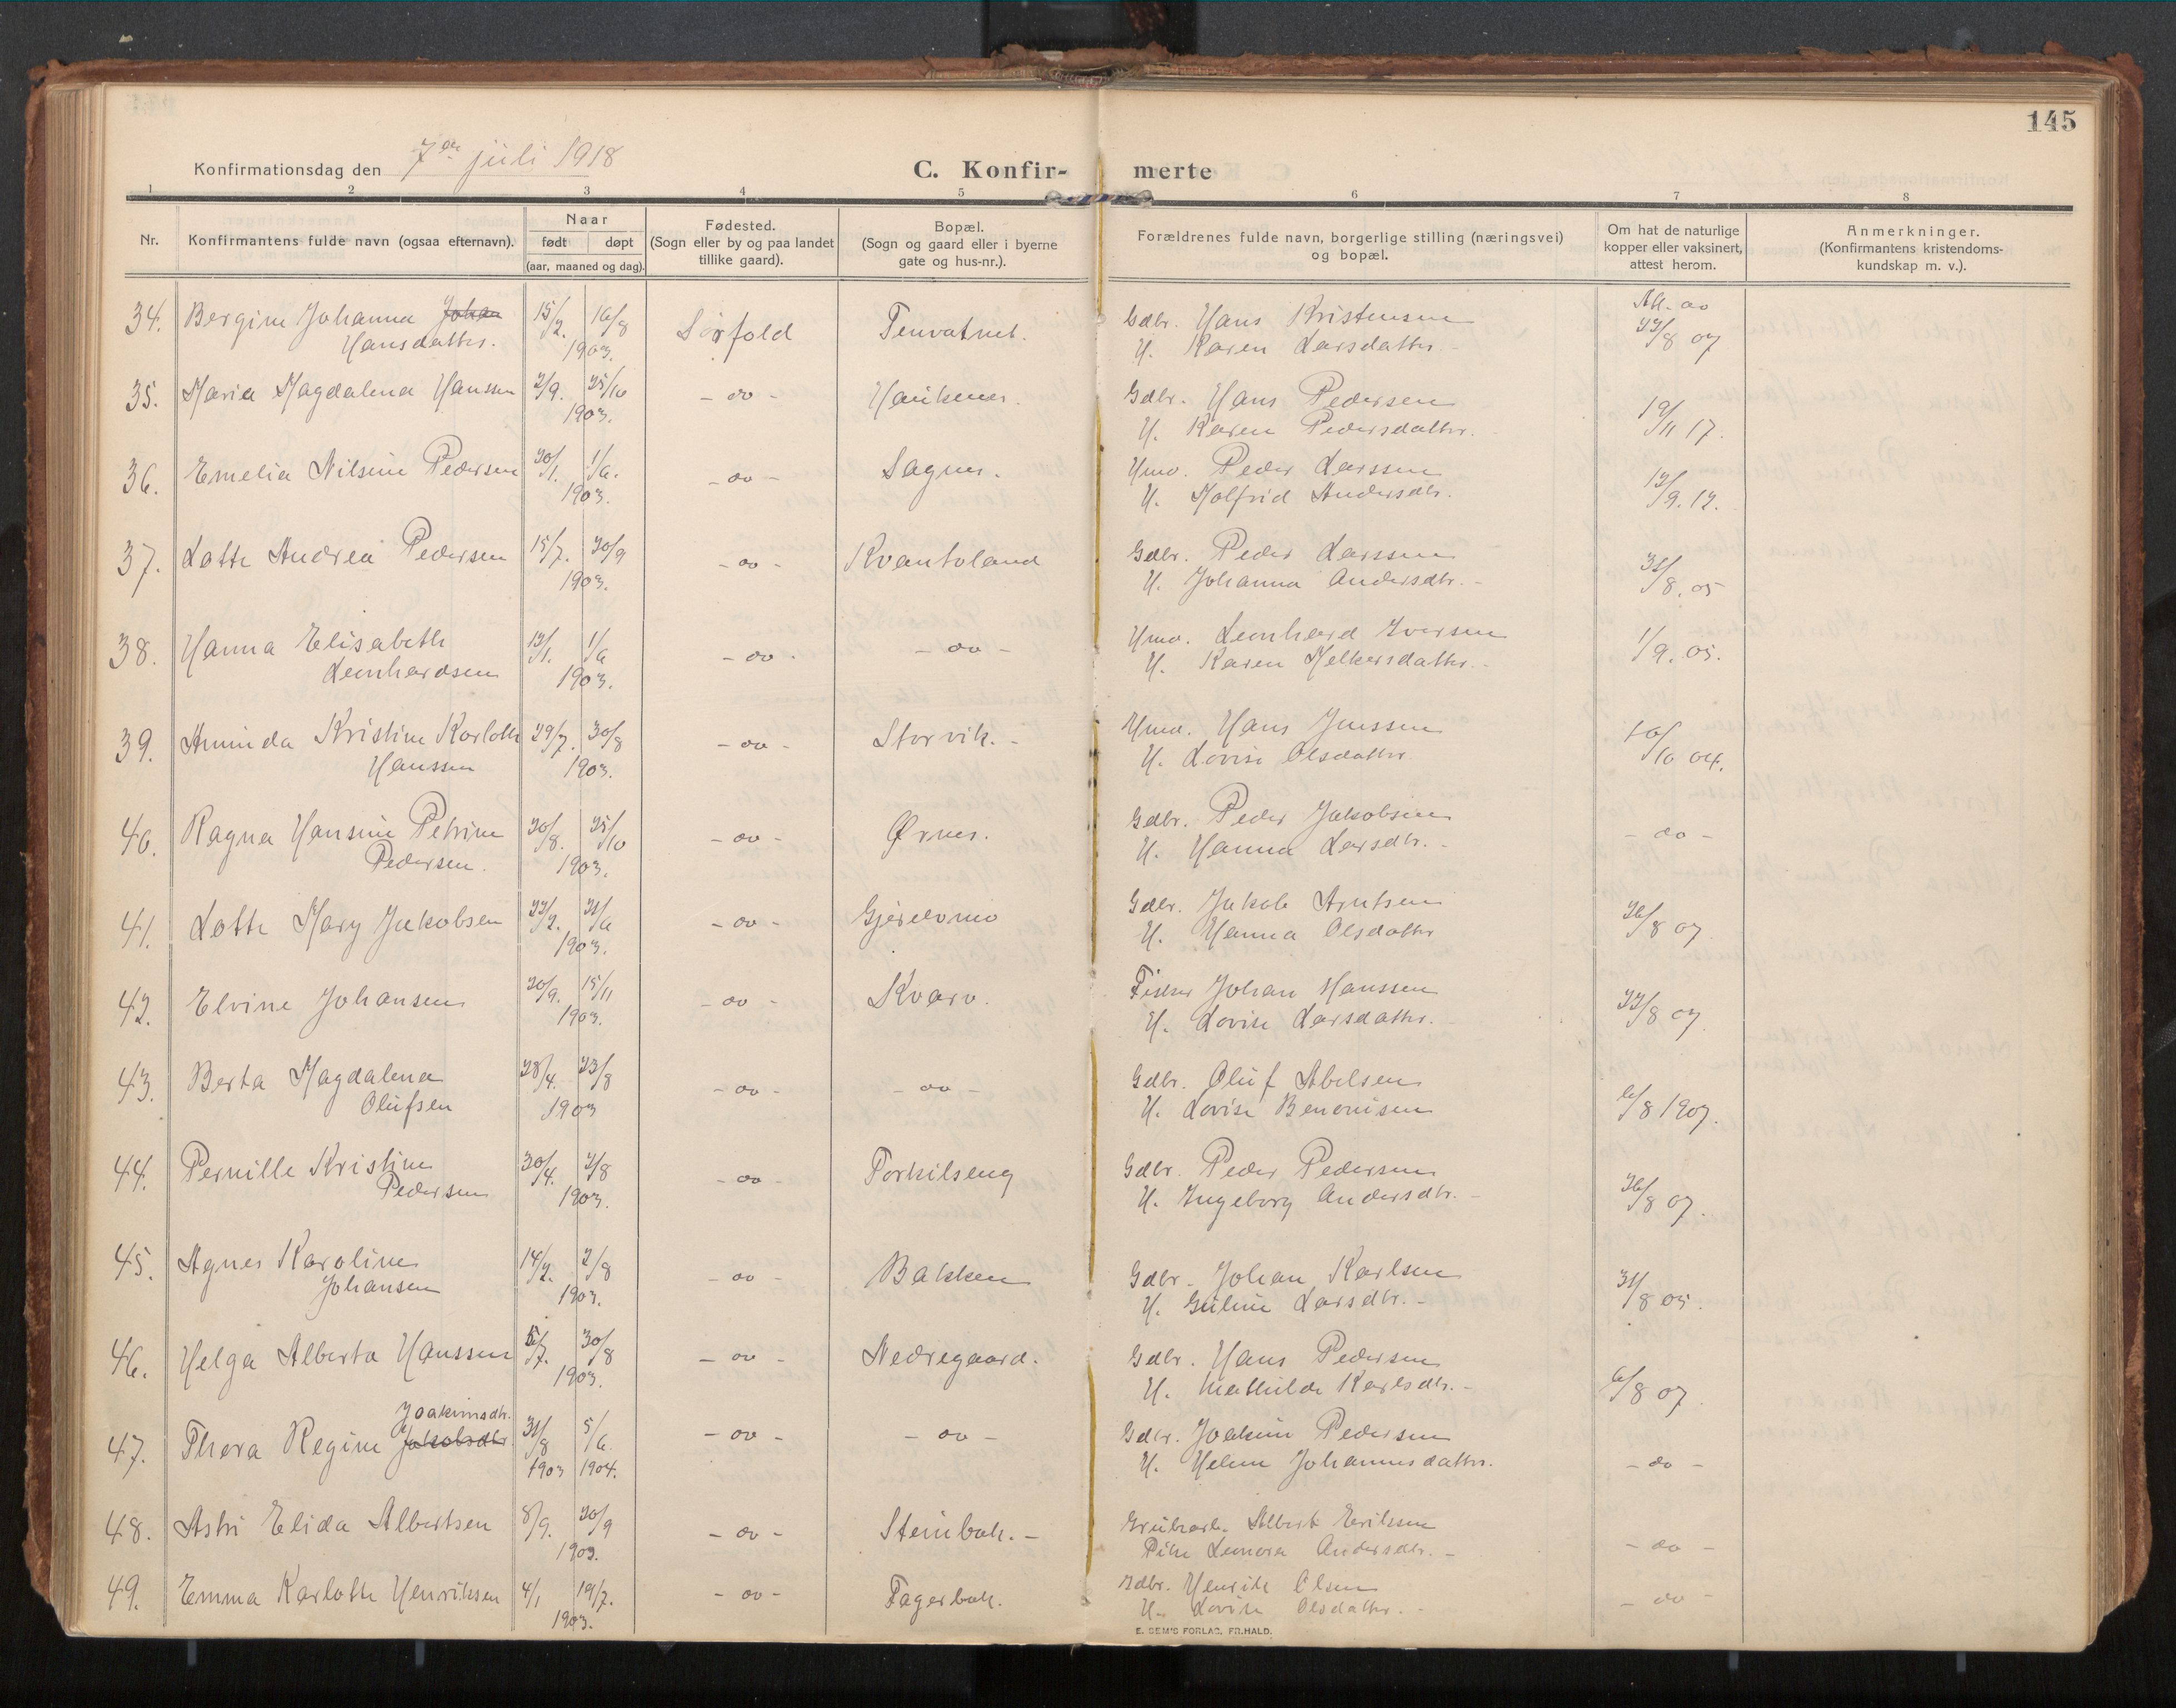 145
Konfirmationsdag den 7de juli 1918
C. Konfir- merte
1 2 3 4 5 6 7 8
Nr.
Konfirmantens fulde navn (ogsaa efternavn).
Naar
født døpt
(aar, maaned og dag).
Fødested.
(Sogn eller by og paa landet
tillike gaard).
Bopæl.
(Sogn og gaard eller i byerne
gate og hus-nr.).
Forældrenes fulde navn, borgerlige stilling (næringsvei)
og bopæl.
Om hat de naturlige
kopper eller vaksinert,
attest herom.
Anmerkninger.
(Konfirmantens kristendoms-
kundskap m. v.).
34. Bergine Johanna Johan 15/2. 16/8 Sørfold Tenvatnet. Gdbr. Hans Kristensen Att. av
Hansdatter. 1903. H. Karen Larsdatter. 23/8 07
35. Maria Magdalena Hanssen 2/9. 25/10 - do - Gdbr. Hans Pedersen
1903. H. Karen Pedersdatter. 19/11 17.
36. Emelia Nilsine Pedersen 30/1. 1/6. - do - Sagnes. Hmd. Peder Larssen
1903. H. Molfrid Andersdtr. 12/9. 17.
37. Lotte Andrea Pedersen 15/7. 20/9 - do - Kvantoland Gdbr. Peder Larssen
1903. H. Johanna Andersdtr. - 31/8. 05
38. Hanna Elisabeth 1/6 - do - - do - Hmd. Leonhard Iversen 1/9. 05.
Leonhardsen 1903. H. Karen Melkersdatter. -
39. Aminda Kristine Karlotte 29/7. 30/8 - do - Storvik. - Hmd. Hans Jenssen
Hanssen 1903. H. Lovise Olsdatter 10/10 04.
40. Ragna Hansine Petrine 30/8. 25/10 - do - Ørnes. Gdbr. Peder Jakobsen - do -
Pedersen. 1903. H. Hanna Larsdtr. -
41. Lotte Mary Jakobsen 22/2. 21/6 - do - Gjerdvmo Gdbr. Jakob Arntsen 26/8 07
1903. H. Hanna Olsdatter
42. Elvine Johansen 20/9. 15/11 - do - Kvarv. Fisker Johan Hanssen
1903. H. Lovise Larsdatter. 23/8 07.
43. Berta Magdalena 28/4. 23/8 - do - - do - Gdbr. Oluf Abelsen
Olufsen 1903 H. Lovise Benonisen 6/8 1907.
44. Pernille Kristine 30/4. 2/8 - do - Torkilseng Gdbr. Peder Pedersen
Pedersen 1903. H. Ingeborg Andersdtr. - 26/8 07.
45. Agnes Karoline 14/2. 2/8 - do - Bakken Gdbr. Johan Karlsen
Johansen 1903. H. Guline Larsdtr. - 31/8 05.
46. Helga Alberta Hanssen 5/7. 30/8 - do - Nedregaard. Gdbr. Hans Pedersen
1903. H. Mathilde Karlsdtr. - 6/8 07.
Joakimsdtr.
47. Thora Regine Jakobsdtr 31/8 5/6. - do - - do - Gdbr. Joakim Pedersen
1903 1904. H. Helene Johannesdatter. - do -
48. Astri Elida Albertsen 8/9. 20/9 - do - Steinbak. - Grubearb. Albert Eriksen
1903. Pike Leonora Andersdtr. - - do -
49. Emma Karlotte Henriksen 4/1 19/7. - do - Fagerbak. Gdbr. Henrik Olsen
1903. H. Lovise Olsdatter. - - do -
E. SEM'S FORLAG, FR.HALD.